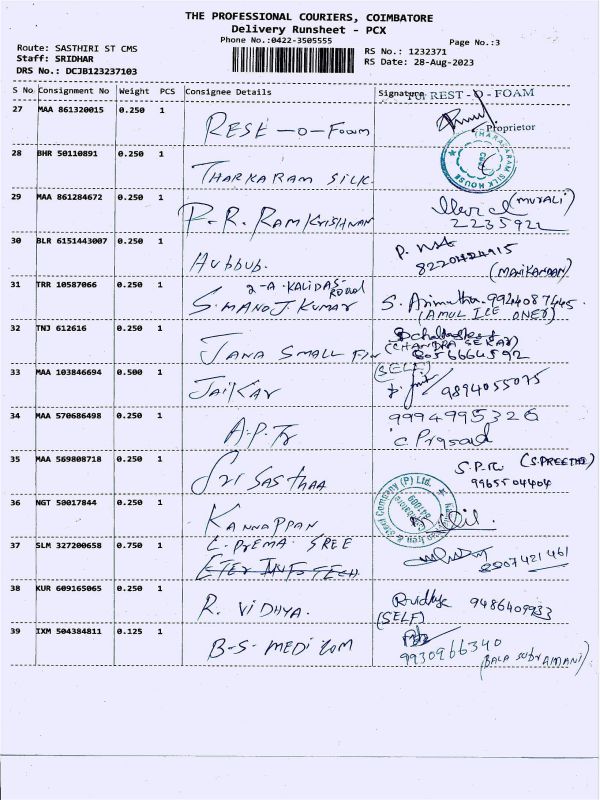 THE PROFESSIONAL COURIERS, COIMBATORE
Delivery Runsheet - PCX
Phone No.:0422-3505555
Page No.:3
Route: SASTHIRI ST CMS
Staff: SRIDHAR
DRS No.: DCJB123237103
RS No.: 1232371
RS Date: 28-Aug-2023
S No Consignment No Weight PCS Consignee Details Signature For REST - O - FOAM
27 MAA 861320015 0.250 1 REST - O - FOAM
Proprietor
28 BHR 50110891 0.250 1 THARKARAM SILK. THARAKARAM SILK HOUSE
29 MAA 861284672 0.250 1 P. R. RAMKRISHNAN (MURALI)
2235922
30 BLR 6151443007 0.250 1 Hubbub. 8220424915
(MANIKANDAN)
31 TRR 10587066 0.250 1 2-A. KALIDAS Road
S. MANOJ. KUMAR S. 9924087445.
(AMUL ICE ONER)
32 TNJ 612616 0.250 1 JANA SMALL FIN (CHANDRA SEKAR)
8056664592
33 MAA 103846694 0.500 1 JaiKar (SELF)
9894055075
34 MAA 570686498 0.250 1 A.P.Tr 9994995326
C Prasad
35 MAA 569808718 0.250 1 Sri Sasthaa S.P.R. (S.PREETHI)
9965504404
36 NGT 50017844 0.250 1 KANNAPPAN Iron & Steel Company (P) Ltd.
37 SLM 327200658 0.750 1 C. PREMA SREE
8907421461
38 KUR 609165065 0.250 1 R. VIDHYA. Rvidhya 9486409933
(SELF)
39 IXM 504384811 0.125 1 B-S- MEDI COM 9930966340
(BALA SUBRAMANI)